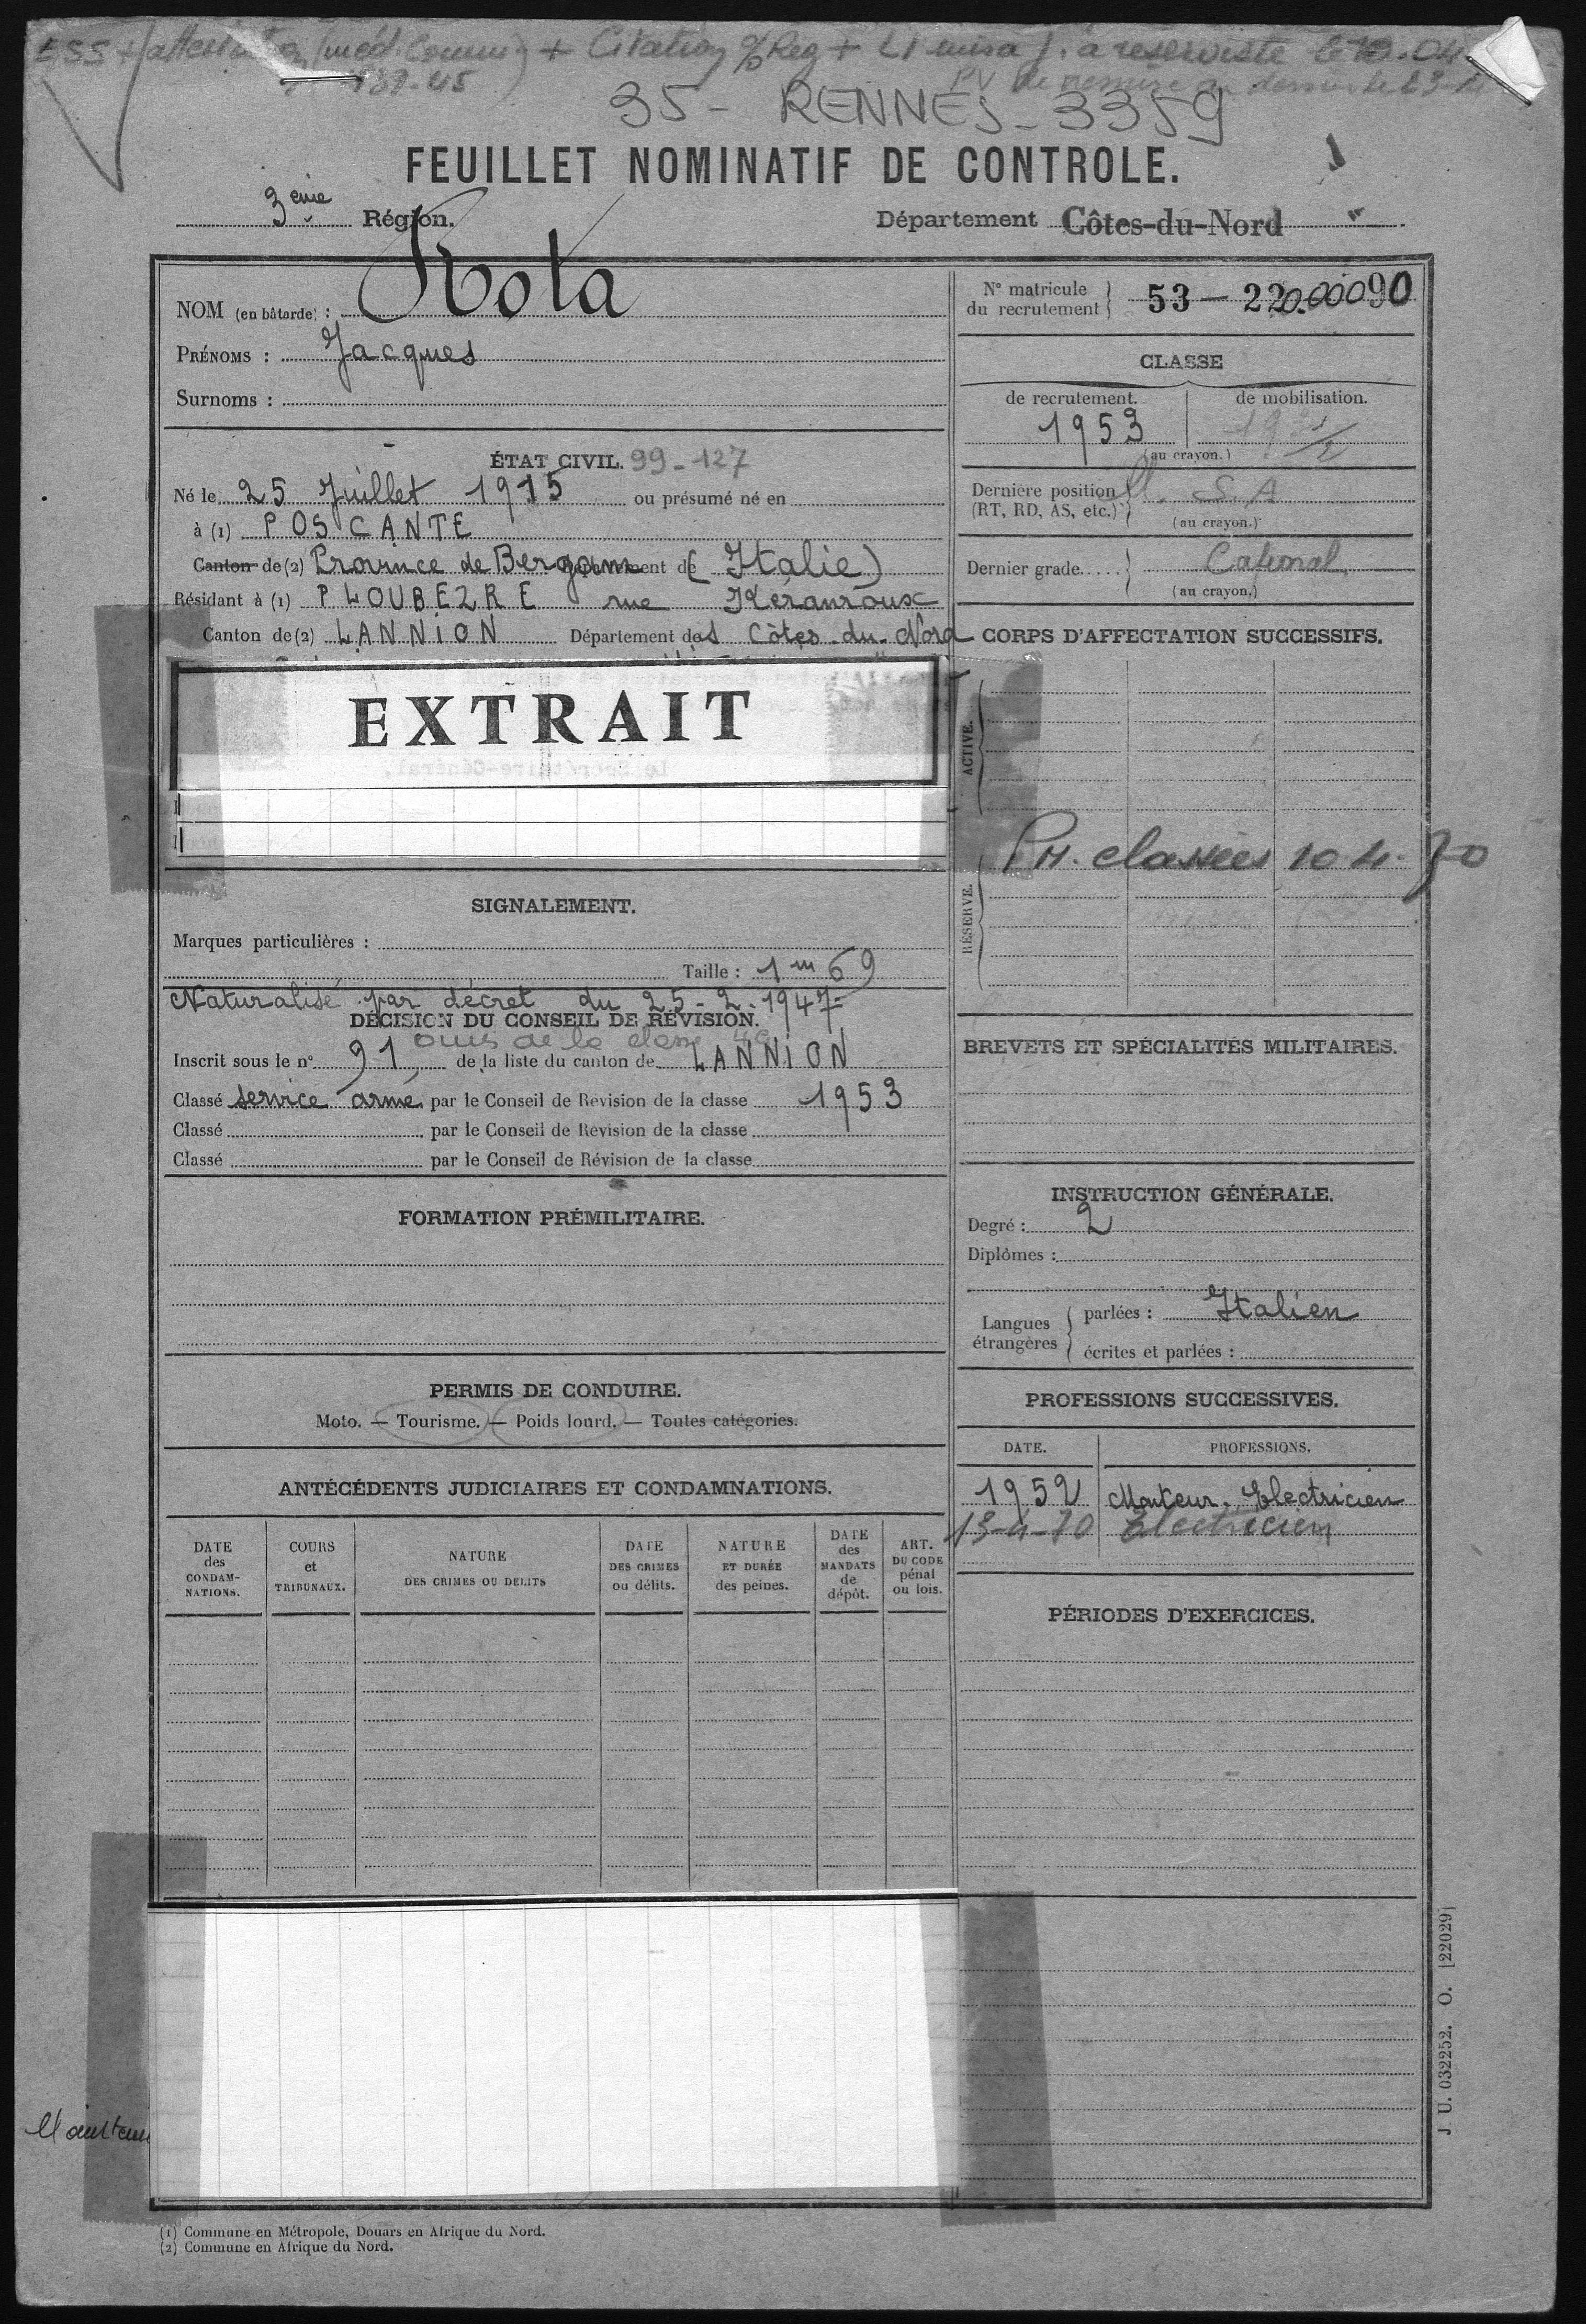 + Citation
35 - RENNES - 3359
FEUILLET NOMINATIF DE CONTROLE.
3eme Région.
Département Côtes-du-Nord
NOM (en bâtarde) : Rota
PRÉNOMS : Jacques
Surnoms :
ÉTAT CIVIL. 99-127
Né le 25 Juillet 1915 ou présumé né en
à (1) POSCANTE
Canton de (2) Province de Bergame (Italie)
Résidant à (1) PLOUBEZRE rue Kéranroux
Canton de (2) LANNION Département des Côtes-du-Nord
EXTRAIT
SIGNALEMENT.
Marques particulières :
Taille : 1m 69
Naturalisé par décret du 25-2-1947
DÉCISION DU CONSEIL DE RÉVISION.
Inscrit sous le n° 91 de la liste du canton de LANNION
Classé service armé par le Conseil de Révision de la classe 1953
Classé par le Conseil de Révision de la classe
Classé par le Conseil de Révision de la classe
FORMATION PRÉMILITAIRE.
PERMIS DE CONDUIRE.
Moto. — Tourisme. — Poids lourd. — Toutes catégories.
ANTÉCÉDENTS JUDICIAIRES ET CONDAMNATIONS.
DATE des CONDAM-NATIONS.
COURS et TRIBUNAUX.
NATURE DES CRIMES OU DÉLITS
DATE DES CRIMES ou délits.
NATURE ET DURÉE des peines.
DATE des MANDATS de dépôt.
ART. DU CODE pénal ou lois.
N° matricule du recrutement 53 — 220.00090
CLASSE
de recrutement. de mobilisation.
1953
(au crayon.)
Dernière position (RT, RD, AS, etc.)
S A
(au crayon.)
Dernier grade.... Caporal
(au crayon.)
CORPS D'AFFECTATION SUCCESSIFS.
ACTIVE.
classées 10 4. 70
RÉSERVE.
BREVETS ET SPÉCIALITÉS MILITAIRES.
INSTRUCTION GÉNÉRALE.
Degré : 2
Diplômes :
Langues étrangères
parlées : Italien
écrites et parlées :
PROFESSIONS SUCCESSIVES.
DATE. PROFESSIONS.
1952 Monteur. Electricien
13-4-70 Electricien
PÉRIODES D'EXERCICES.
J U. 032252. O. [22029]
(1) Commune en Métropole, Douars en Afrique du Nord.
(2) Commune en Afrique du Nord.